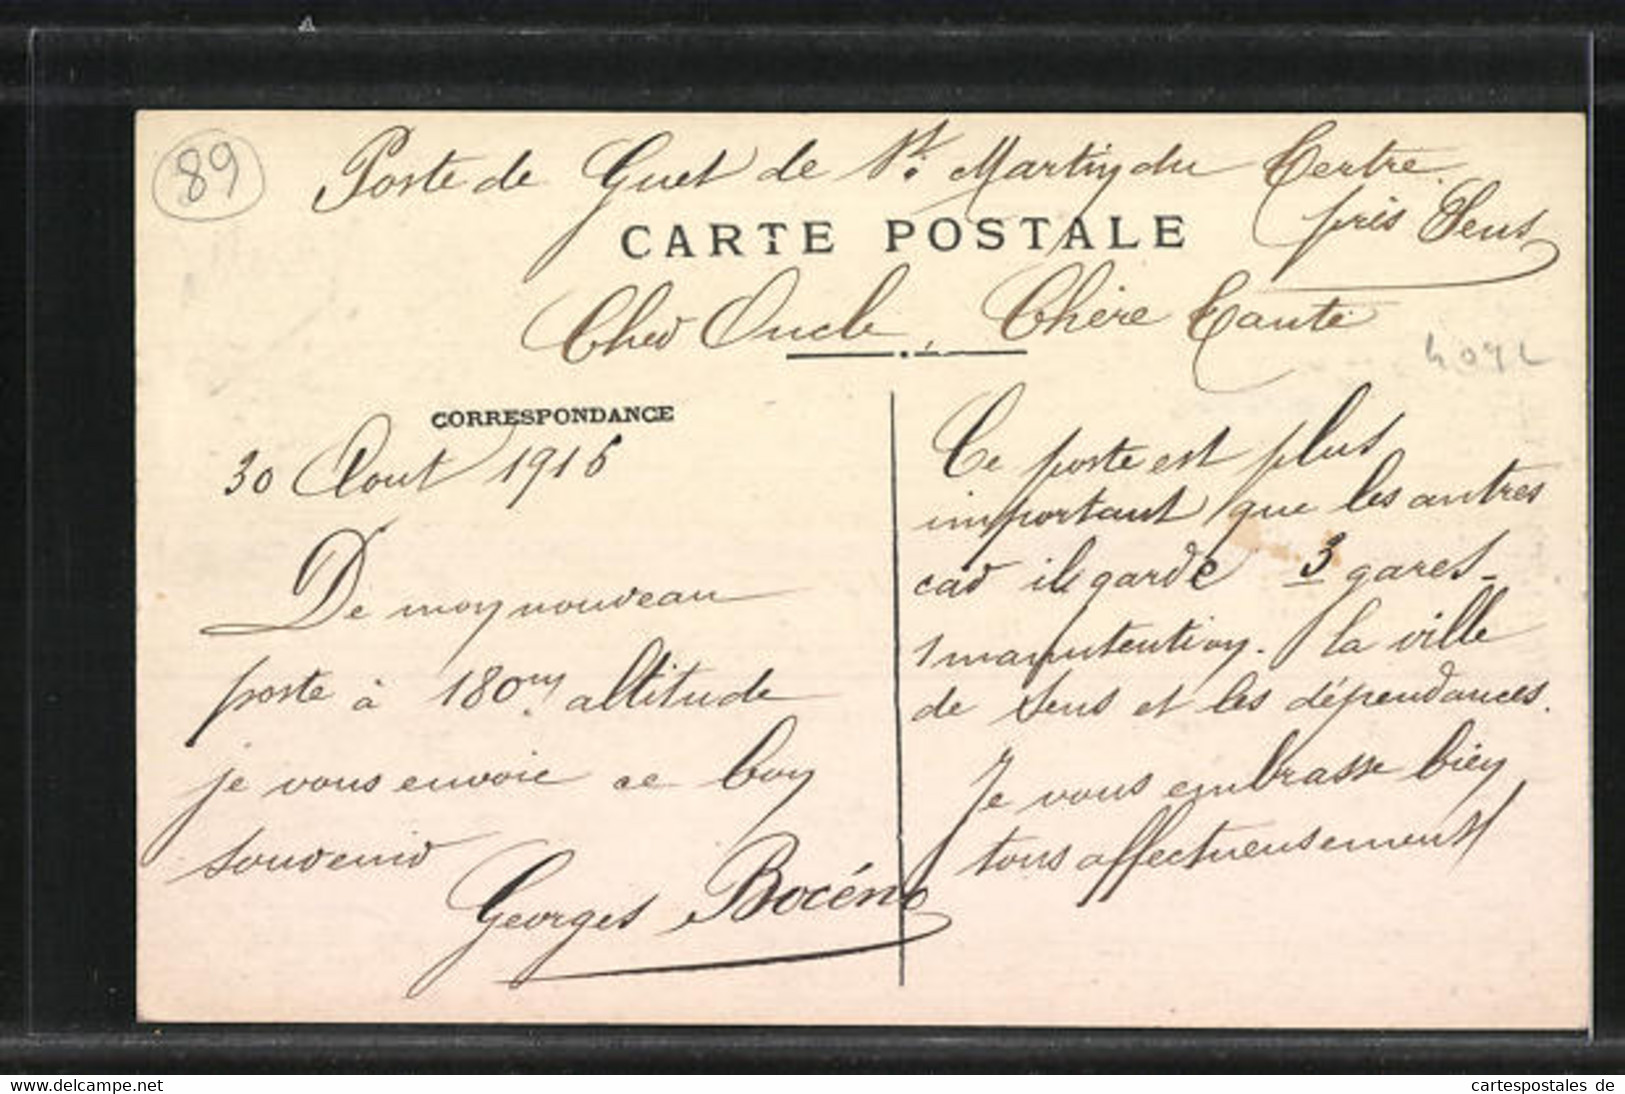 89
Poste de Guet de St. Martin du Tertre
près Sens
CARTE POSTALE
Cher Oncle, Chère Tante
CORRESPONDANCE
30 Aout 1916
De mon nouveau
poste à 180m altitude
je vous envoie ce bon
souvenir
Georges Bocéno
Ce poste est plus
important que les autres
car il garde 3 gares_
1 manutention. la ville
de Sens et les dépendances.
Je vous embrasse bien
tous affectueusement
www.delcampe.net
cartespostales de